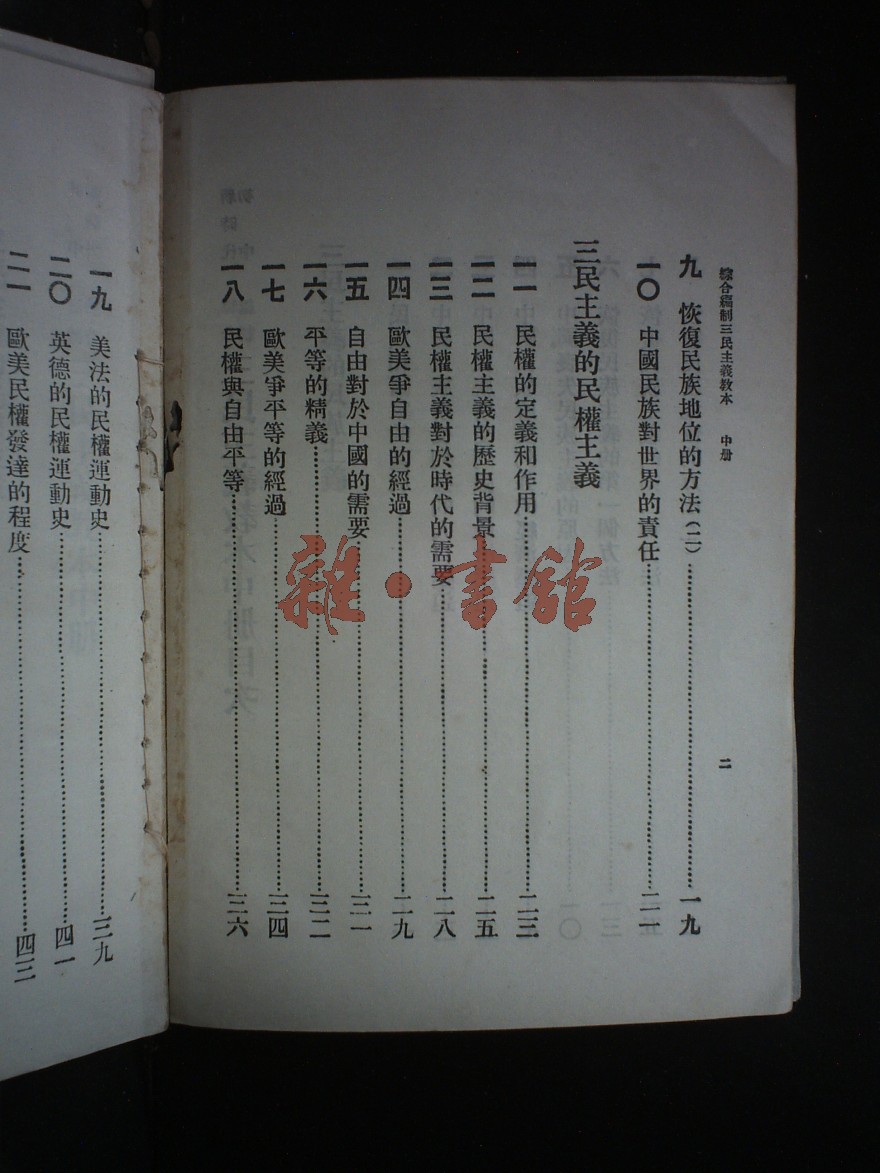 綜合編制三民主義教本 中册
二
九 恢復民族地位的方法(二)……一九
一〇 中國民族對世界的責任……二一
三民主義的民權主義
一一 民權的定義和作用……二三
一二 民權主義的歷史背景……二五
一三 民權主義對於時代的需要……二八
一四 歐美爭自由的經過……二九
一五 自由對於中國的需要……三一
一六 平等的精義……三二
一七 歐美爭平等的經過……三四
一八 民權與自由平等……三六
一九 美法的民權運動史……三九
二〇 英德的民權運動史……四一
二一 歐美民權發達的程度……四三
雜·書館